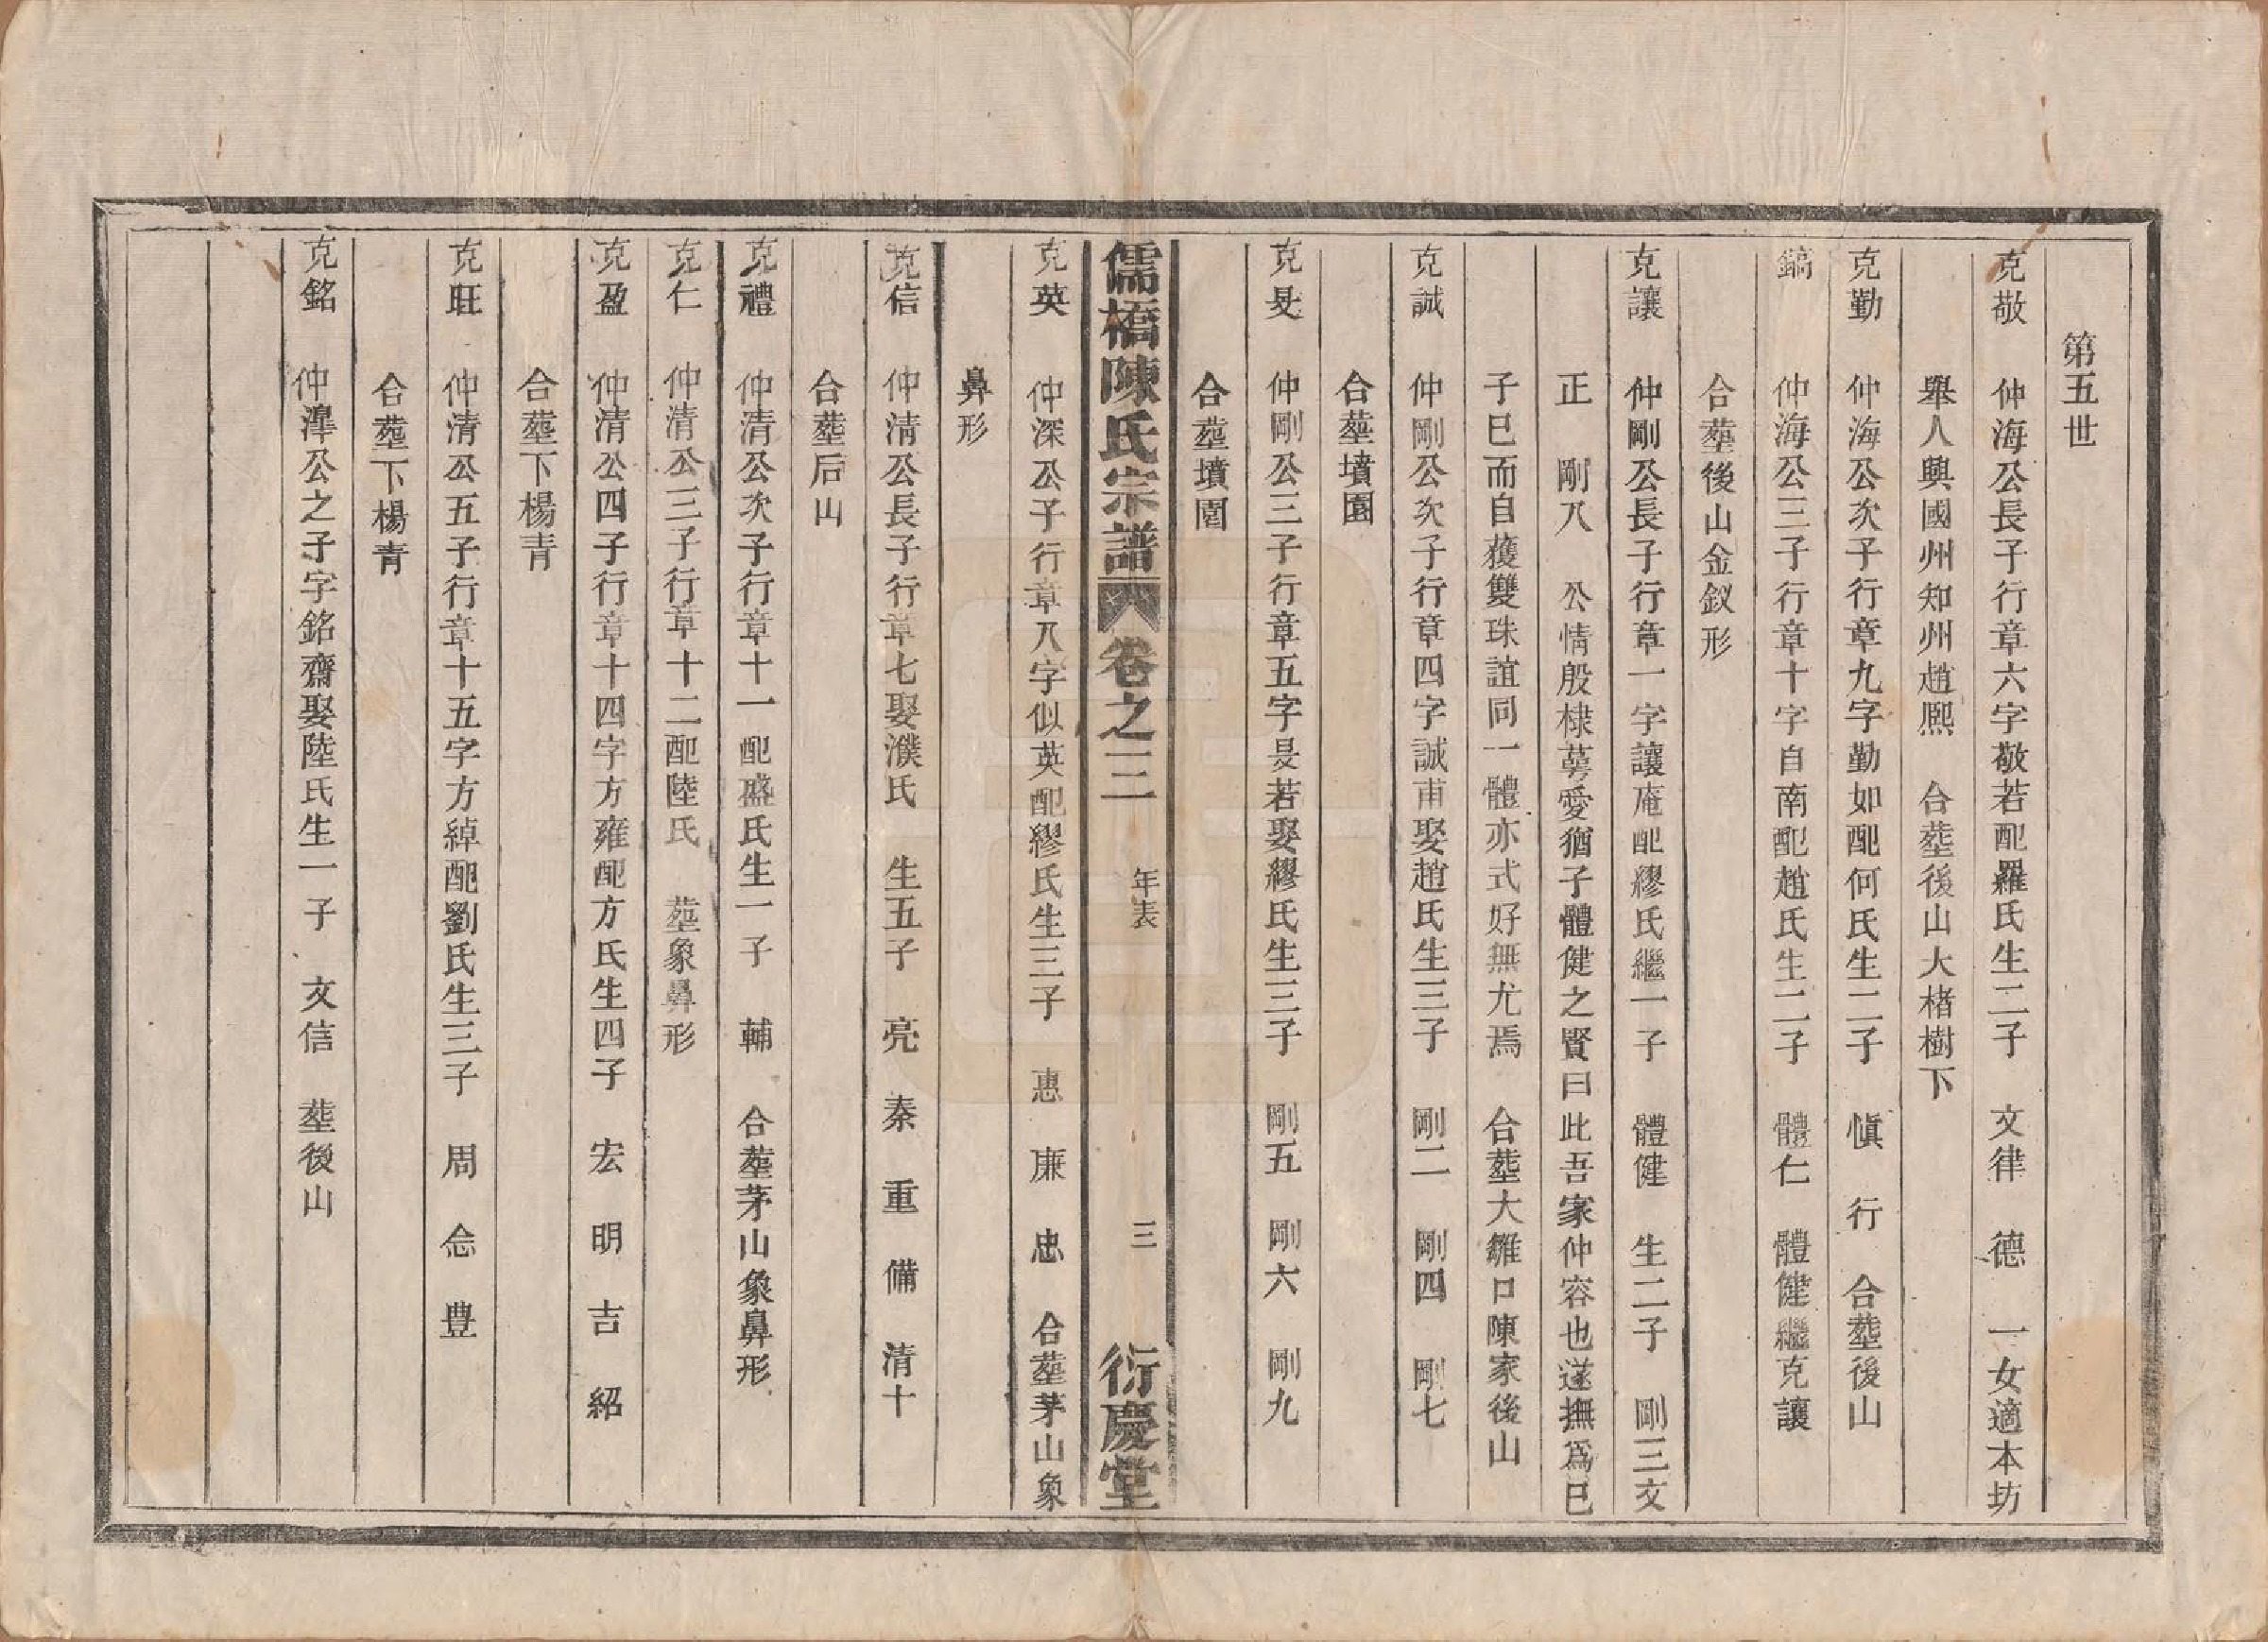 第五世
克敬　仲海公長子行章六字敬若配羅氏生二子　文律　德　一女適本坊
舉人興國州知州趙熈　合塟後山大楮樹下
克勤　仲海公次子行章九字勤如配何氏生二子　愼　行　合塟後山
鎬　仲海公三子行章十字自南配趙氏生二子　體仁　體健繼克讓
合塟後山金釵形
克讓　仲剛公長子行章一字讓庵配繆氏繼一子　體健　生二子　剛三文
正　剛八　公情殷棣萼愛猶子體健之賢曰此吾家仲容也遂撫爲巳
子巳而自獲雙珠誼同一體亦式好無尤焉　合塟大雛口陳家後山
克誠　仲剛公次子行章四字誠甫娶趙氏生三子　剛二　剛四　剛七
合塟墳園
克旻　仲剛公三子行章五字旻若娶繆氏生三子　剛五　剛六　剛九
合塟墳園
儒橋陳氏宗譜　卷之二　年表　三　衍慶堂
克英　仲深公子行章八字似英配繆氏生三子　惠　廉　忠　合塟茅山象
鼻形
克信　仲淸公長子行章七娶濮氏　生五子　亮　秦　重　備　清十
合塟后山
克禮　仲清公次子行章十一配盛氏生一子　輔　合塟茅山象鼻形
克仁　仲清公三子行章十二配陸氏　塟象鼻形
克盈　仲清公四子行章十四字方雍配方氏生四子　宏　明　吉　紹
合塟下楊青
克旺　仲清公五子行章十五字方綽配劉氏生三子　周　念　豊
合塟下楊青
克銘　仲潬公之子字銘齋娶陸氏生一子　文信　塟後山